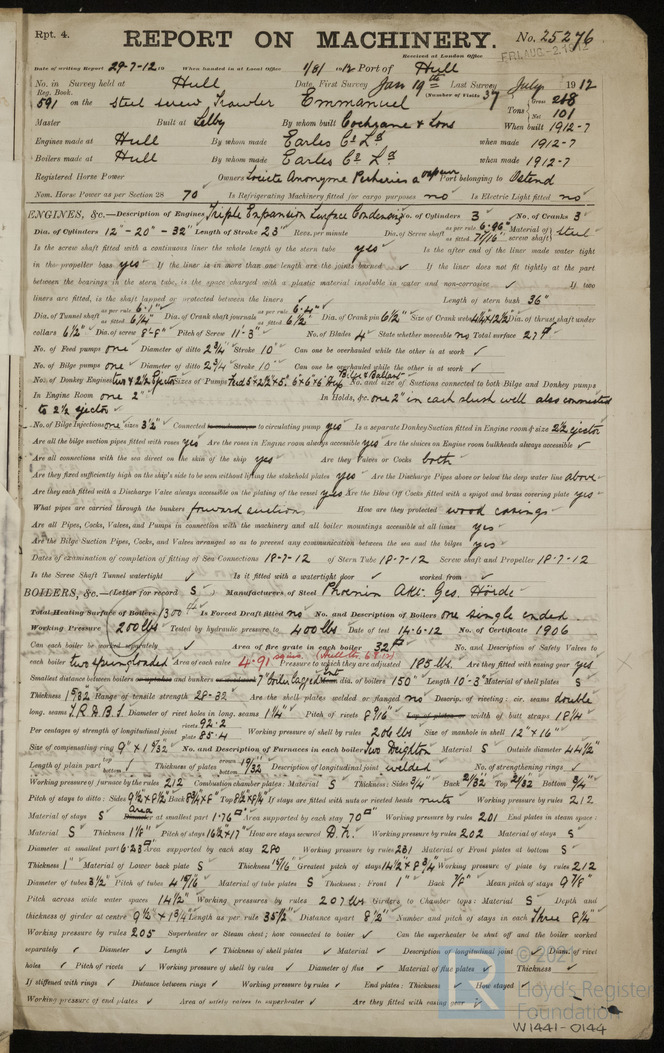 Rpt. 4.
REPORT ON MACHINERY.
No. 25276
Received at London Office
FRI. AUG - 2 1912
Date of writing Report 29-7-12 19 When handed in at Local Office 1/8/ 1912 Port of Hull
No. in Survey held at Hull Date, First Survey Jan 19th Last Survey July 1912
Reg. Book. (Number of Visits 37
591 on the steel screw Trawler Emmanuel Tons Gross 268 Net 101
Master Built at Selby By whom built Cochrane & Sons When built 1912-7
Engines made at Hull By whom made Earles Co Ld when made 1912-7
Boilers made at Hull By whom made Earles Co Ld when made 1912-7
Registered Horse Power Owners Societe Anonyme Pecheries a vapeur Port belonging to Ostend
Nom. Horse Power as per Section 28 70 Is Refrigerating Machinery fitted for cargo purposes no Is Electric Light fitted no
ENGINES, &c.—Description of Engines Triple Expansion Surface Condensing No. of Cylinders 3 No. of Cranks 3
Dia. of Cylinders 12" - 20" - 32" Length of Stroke 23" Revs. per minute Dia. of Screw shaft as per rule 6.96" as fitted 7 7/16" Material of screw shaft steel
Is the screw shaft fitted with a continuous liner the whole length of the stern tube yes Is the after end of the liner made water tight
in the propeller boss yes If the liner is in more than one length are the joints burned ✓ If the liner does not fit tightly at the part
between the bearings in the stern tube, is the space charged with a plastic material insoluble in water and non-corrosive ✓ If two
liners are fitted, is the shaft lapped or protected between the liners ✓ Length of stern bush 36"
Dia. of Tunnel shaft as per rule 6.1" as fitted 6 1/4" Dia. of Crank shaft journals as per rule 6.4" as fitted 6 1/2" Dia. of Crank pin 6 1/2" Size of Crank webs Dia. of thrust shaft under
collars 6 1/2" Dia. of screw 8'-8" Pitch of Screw 11'-3" No. of Blades 4 State whether moveable no Total surface 27
No. of Feed pumps one Diameter of ditto 2 3/4" Stroke 10" Can one be overhauled while the other is at work ✓
No. of Bilge pumps one Diameter of ditto 2 3/4" Stroke 10" Can one be overhauled while the other is at work ✓
No. of Donkey Engines Sizes of Pumps No. and size of Suctions connected to both Bilge and Donkey pumps
In Engine Room one 2" In Holds, &c. one 2" in each slush well also connected
to 2 1/2 ejector
No. of Bilge Injections one sizes 3 1/2" Connected to circulating pump yes Is a separate Donkey Suction fitted in Engine room & size 2 1/2 ejector
Are all the bilge suction pipes fitted with roses yes Are the roses in Engine room always accessible yes Are the sluices on Engine room bulkheads always accessible ✓
Are all connections with the sea direct on the skin of the ship yes Are they Valves or Cocks both
Are they fixed sufficiently high on the ship's side to be seen without lifting the stokehold plates yes Are the Discharge Pipes above or below the deep water line above
Are they each fitted with a Discharge Valve always accessible on the plating of the vessel yes Are the Blow Off Cocks fitted with a spigot and brass covering plate yes
What pipes are carried through the bunkers forward suction How are they protected wood casings
Are all Pipes, Cocks, Valves, and Pumps in connection with the machinery and all boiler mountings accessible at all times yes
Are the Bilge Suction Pipes, Cocks, and Valves arranged so as to prevent any communication between the sea and the bilges yes
Dates of examination of completion of fitting of Sea Connections 18-7-12 of Stern Tube 18-7-12 Screw shaft and Propeller 18-7-12
Is the Screw Shaft Tunnel watertight ✓ Is it fitted with a watertight door ✓ worked from ✓
BOILERS, &c.—(Letter for record S) Manufacturers of Steel Phoenix Akt. Ges. Hörde
Total Heating Surface of Boilers 1300 Is Forced Draft fitted no No. and Description of Boilers one single ended
Working Pressure 200 lbs Tested by hydraulic pressure to 400 lbs Date of test 14-6-12 No. of Certificate 1906
Can each boiler be worked separately ✓ Area of fire grate in each boiler 32 No. and Description of Safety Valves to
each boiler two spring loaded Area of each valve 4.91 Pressure to which they are adjusted 185 lbs Are they fitted with easing gear yes
Smallest distance between boilers and bunkers 7" boiler lagged dia. of boilers 150" Length 10'-3" Material of shell plates S
Thickness 1 5/32 Range of tensile strength 28-32 Are the shell plates welded or flanged no Descrip. of riveting: cir. seams double
long. seams T.R.D.B.S Diameter of rivet holes in long. seams 1 1/4" Pitch of rivets 8 9/16" width of butt straps 18 1/4"
Per centages of strength of longitudinal joint rivets 92.2 plate 85.4 Working pressure of shell by rules 206 lbs Size of manhole in shell 12" x 16"
Size of compensating ring 9" x 1 9/32 No. and Description of Furnaces in each boiler Two Deighton Material S Outside diameter 44 1/2"
Length of plain part top bottom Thickness of plates crown bottom 19/32 Description of longitudinal joint welded No. of strengthening rings ✓
Working pressure of furnace by the rules 212 Combustion chamber plates: Material S Thickness: Sides 3/4" Back 21/32" Top 21/32" Bottom 3/4"
Pitch of stays to ditto: Sides 9 1/2" x 8 1/2" Back Top If stays are fitted with nuts or riveted heads nuts Working pressure by rules 212
Material of stays S Area at smallest part 1.76 Area supported by each stay 70 Working pressure by rules 201 End plates in steam space:
Material S Thickness 1 1/8" Pitch of stays 16 1/2" x 17" How are stays secured D.N. Working pressure by rules 202 Material of stays S
Diameter at smallest part 6.23 Area supported by each stay 280 Working pressure by rules 231 Material of Front plates at bottom S
Thickness 1" Material of Lower back plate S Thickness 15/16" Greatest pitch of stays 14 1/2" x 8 3/4" Working pressure of plate by rules 212
Diameter of tubes 3 1/2" Pitch of tubes 4 15/16" Material of tube plates S Thickness: Front 1" Back 7/8" Mean pitch of stays 9 7/8"
Pitch across wide water spaces 14 1/2" Working pressures by rules 207 lbs Girders to Chamber tops: Material S Depth and
thickness of girder at centre 9 1/2" x 1 3/4" Length as per rule 35 1/2" Distance apart 8 1/2" Number and pitch of stays in each Three 8 1/4"
Working pressure by rules 205 Superheater or Steam chest; how connected to boiler ✓ Can the superheater be shut off and the boiler worked
separately ✓ Diameter ✓ Length ✓ Thickness of shell plates ✓ Material ✓ Description of longitudinal joint ✓ Diam. of rivet
holes ✓ Pitch of rivets ✓ Working pressure of shell by rules ✓ Diameter of flue ✓ Material of flue plates ✓ Thickness ✓
If stiffened with rings ✓ Distance between rings ✓ Working pressure by rules ✓ End plates: Thickness ✓ How stayed
Working pressure of end plates ✓ Area of safety valves to superheater ✓ Are they fitted with easing gear ✓
© 2021
LR
Lloyd's Register
Foundation
W1441-0144